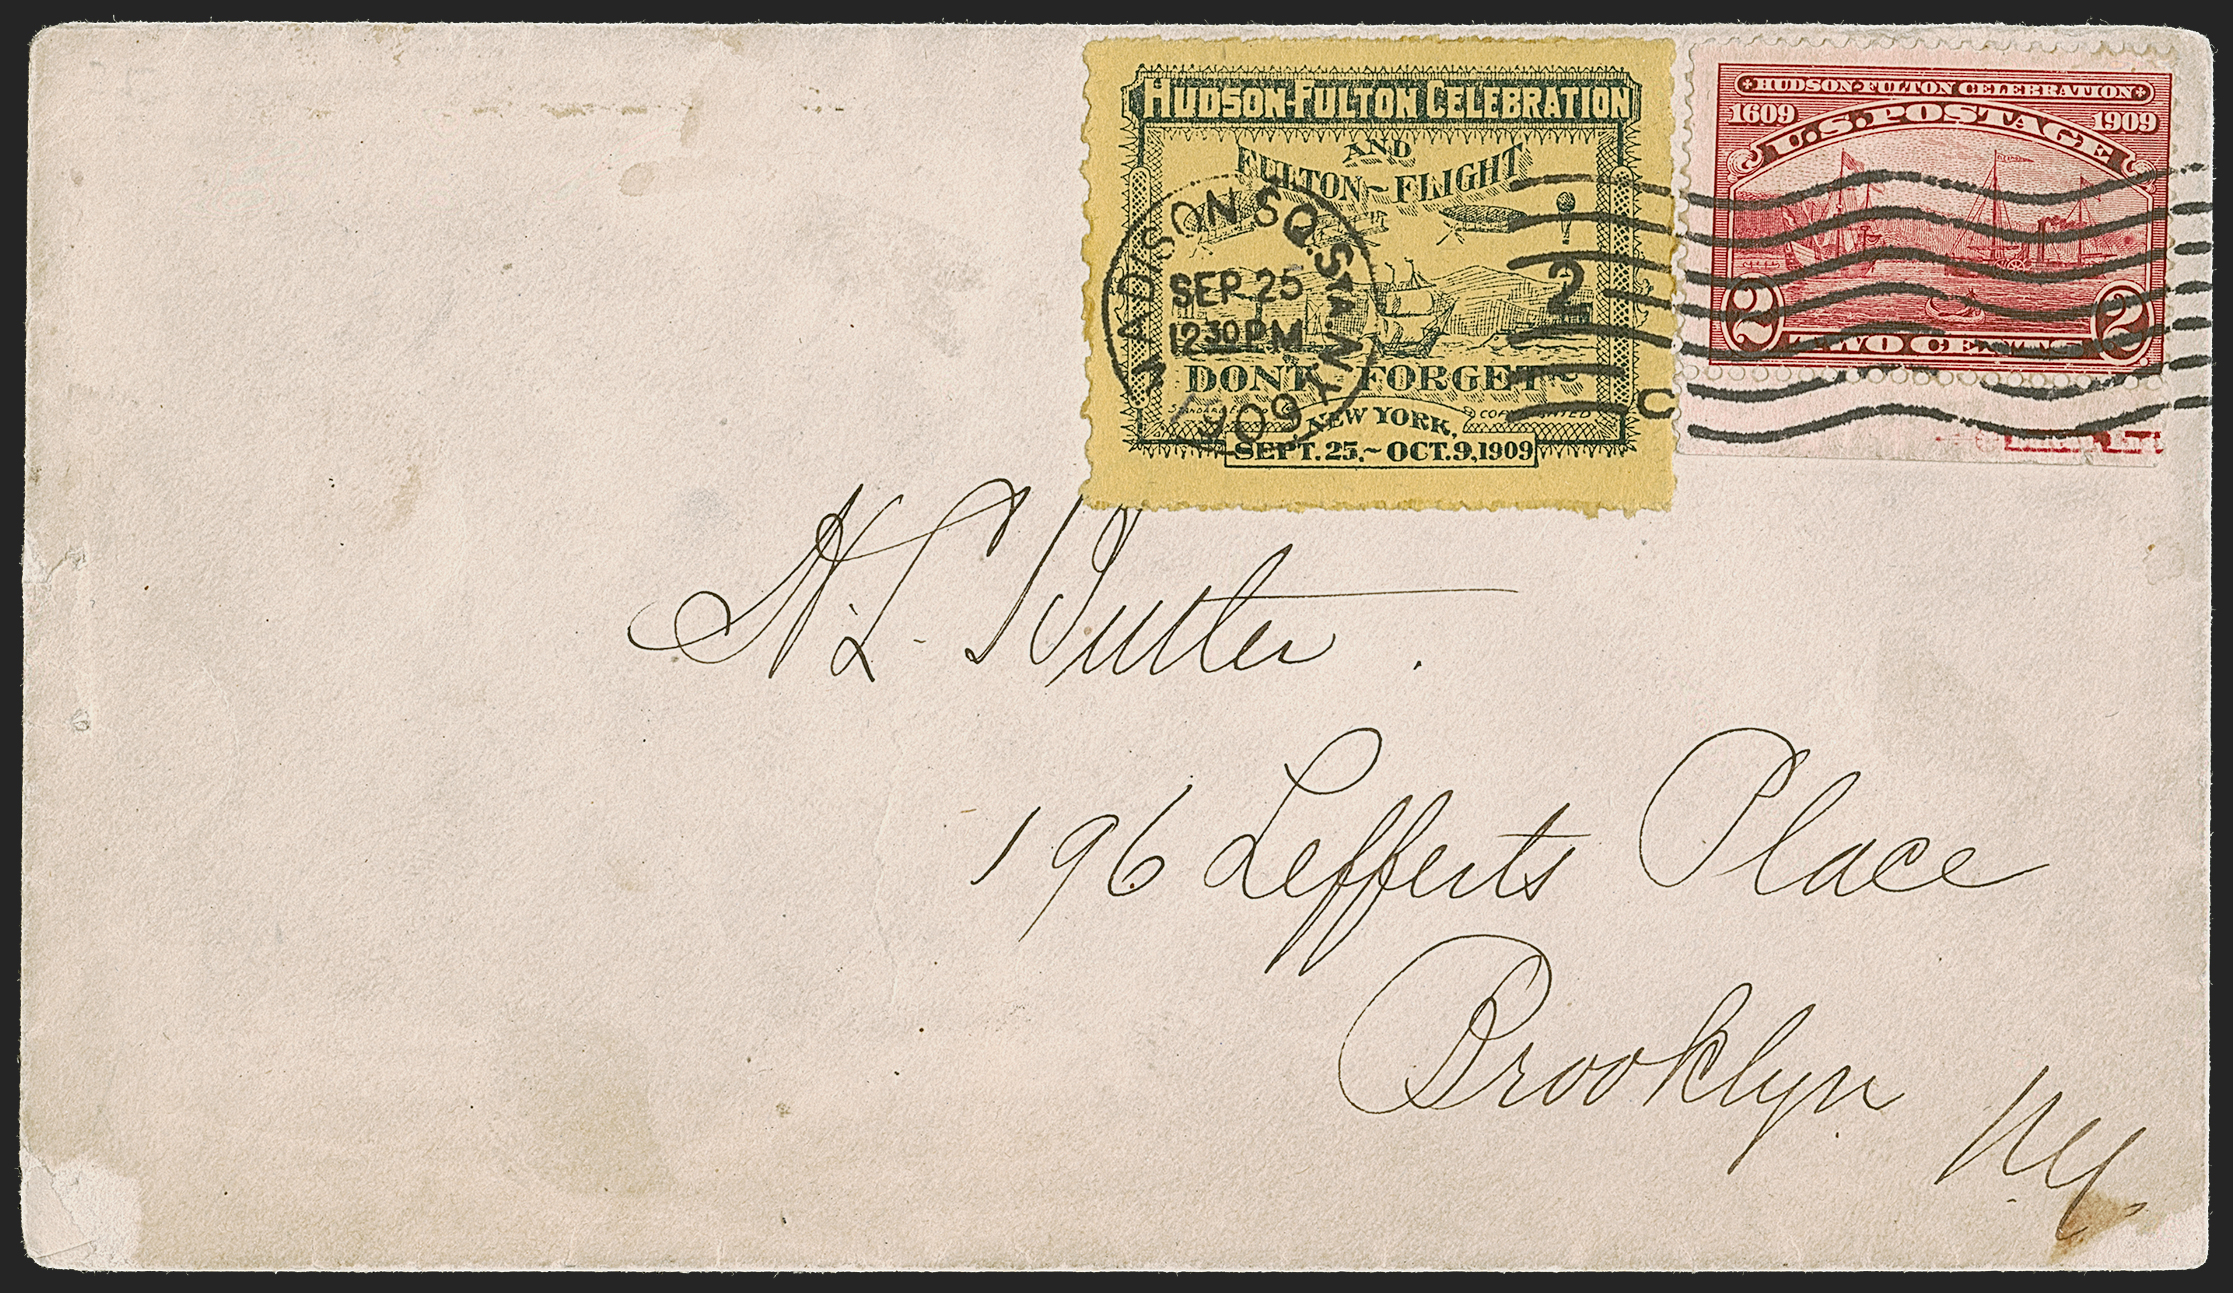 HUDSON-FULTON CELEBRATION
AND
FULTON~FLIGHT
DONT FORGET
NEW YORK,
SEPT. 25.~OCT. 9, 1909
MADISON SQ. STA. N.Y.
SEP 25
12 30 PM
1909
2
C
HUDSON-FULTON CELEBRATION
1609 1909
U.S. POSTAGE
2 2
TWO CENTS
H. L. Butler.
196 Lefferts Place
Brooklyn
N.Y.